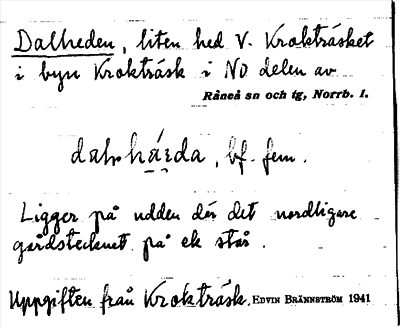 Dalheden, liten hed V. Krokträsket
i byn Krokträsk i NO delen av
Råneå sn och tg, Norrb. l.
bf. fem.
Ligger på udden där det nordligare
gårdstecknet på ek står.
Uppgiften från Krokträsk. EDVIN BRÄNNSTRÖM 1941